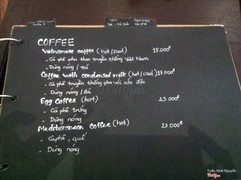 COFFEE
Vietnamese coffee (hot/iced) 15.000đ
- Cà phê pha theo truyền thống Việt Nam
- Dùng nóng / đá
Coffee with condensed milk (hot/iced) 15.000đ
- Cà phê truyền thống pha với sữa đặc
- Dùng nóng / đá
Egg Coffee (hot) 23.000đ
- Cà phê trứng
- Dùng nóng
Mediterranean Coffee (hot) 23.000đ
- Cà phê, quế
- Dùng nóng